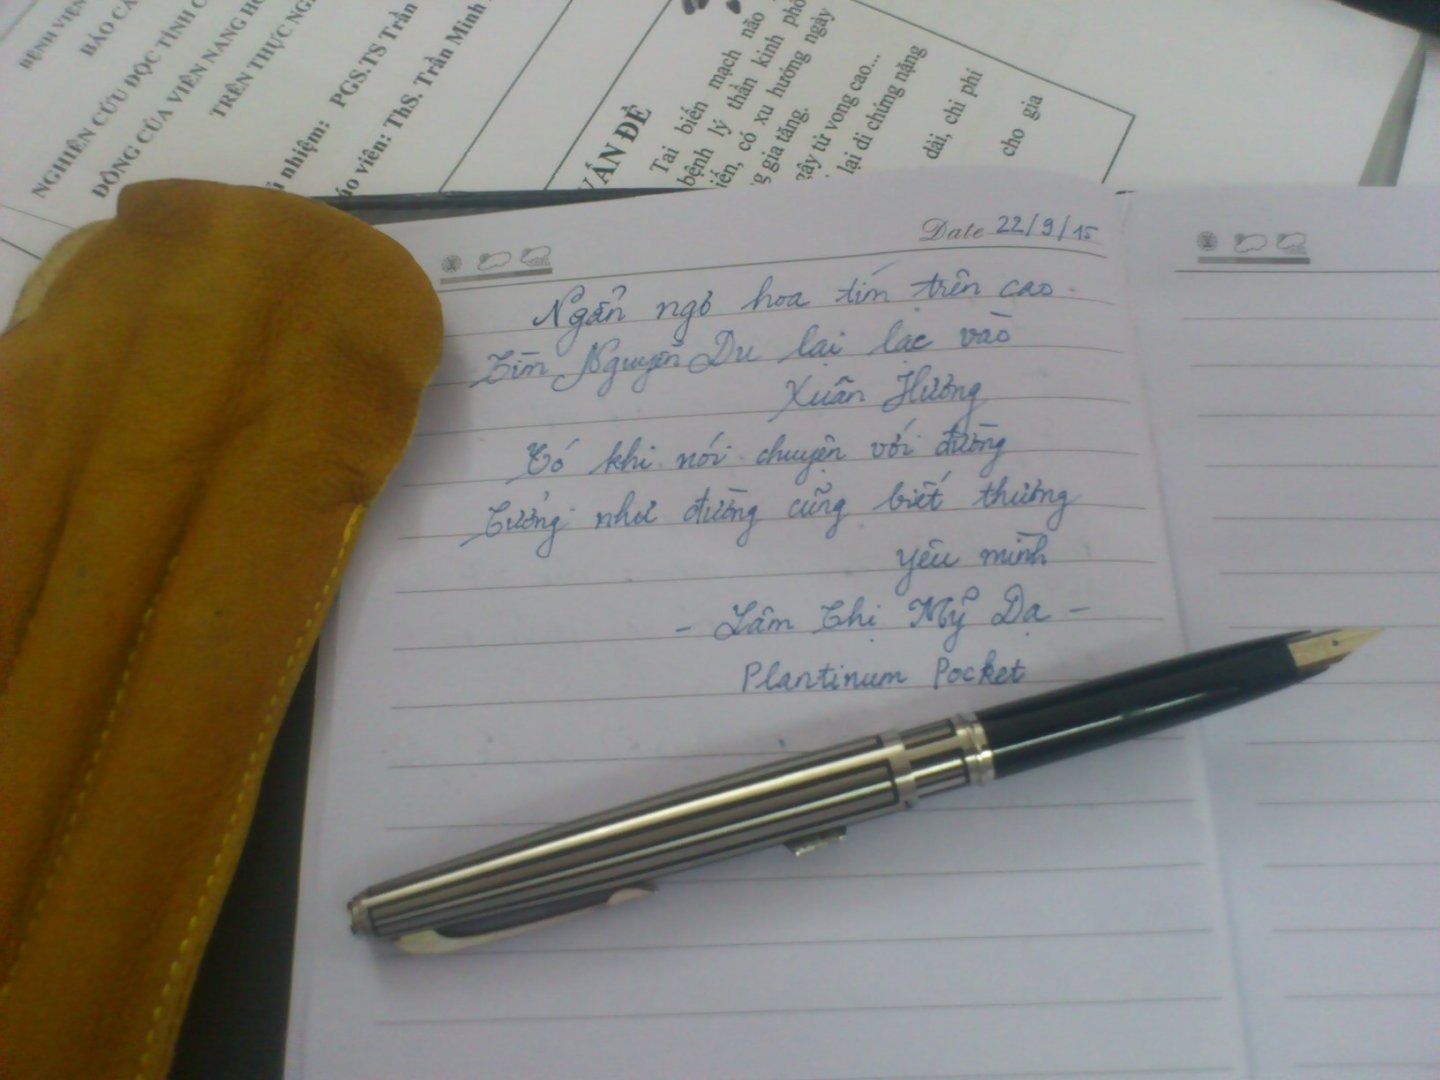 BỆNH VIỆN
BÁO CÁ
NGHIÊN CỨU ĐỘC TÍNH C
ĐỘNG CỦA VIÊN NANG
TRÊN THỰC NG
nhiệm: PGS.TS Trần
áo viên: ThS. Trần Minh
VẤN ĐỀ
Tai biến mạch não
bệnh lý thần kinh phổ
iến, có xu hướng ngày
g gia tăng.
gây tử vong cao...
lại di chứng nặng
dài, chi phí
cho gia
Date 22/9/15
Ngẩn ngơ hoa tím trên cao
Tìm Nguyễn Du lại lạc vào
Xuân Hương
Có khi nói chuyện với đường
Tưởng như đường cũng biết thương
yêu mình
- Lâm Thị Mỹ Dạ -
Plantinum Pocket